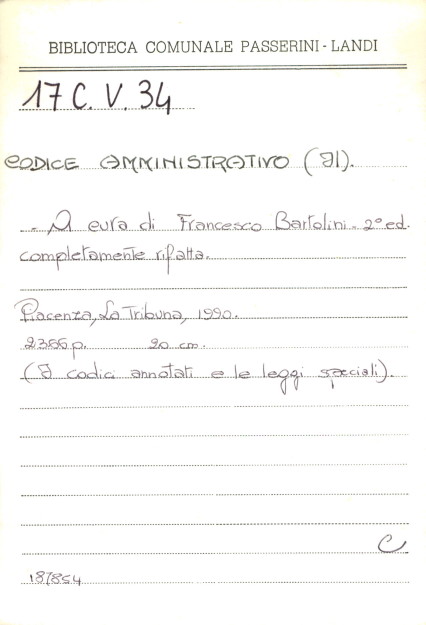 BIBLIOTECA COMUNALE PASSERINI - LANDI
17 C. V. 34
CODICE AMMINISTRATIVO (Il).
- A cura di Francesco Bartolini. 2ª ed.
completamente rifatta.
Piacenza, La Tribuna, 1990.
2366 p. 20 cm.
(I codici annotati e le leggi speciali).
C
187854